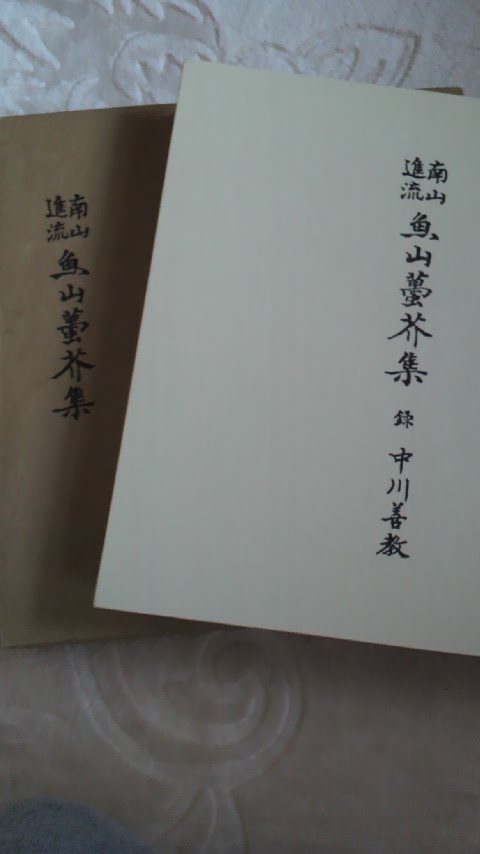 南山
進流
魚山蠆芥集
南山
進流
魚山蠆芥集 録 中川善教